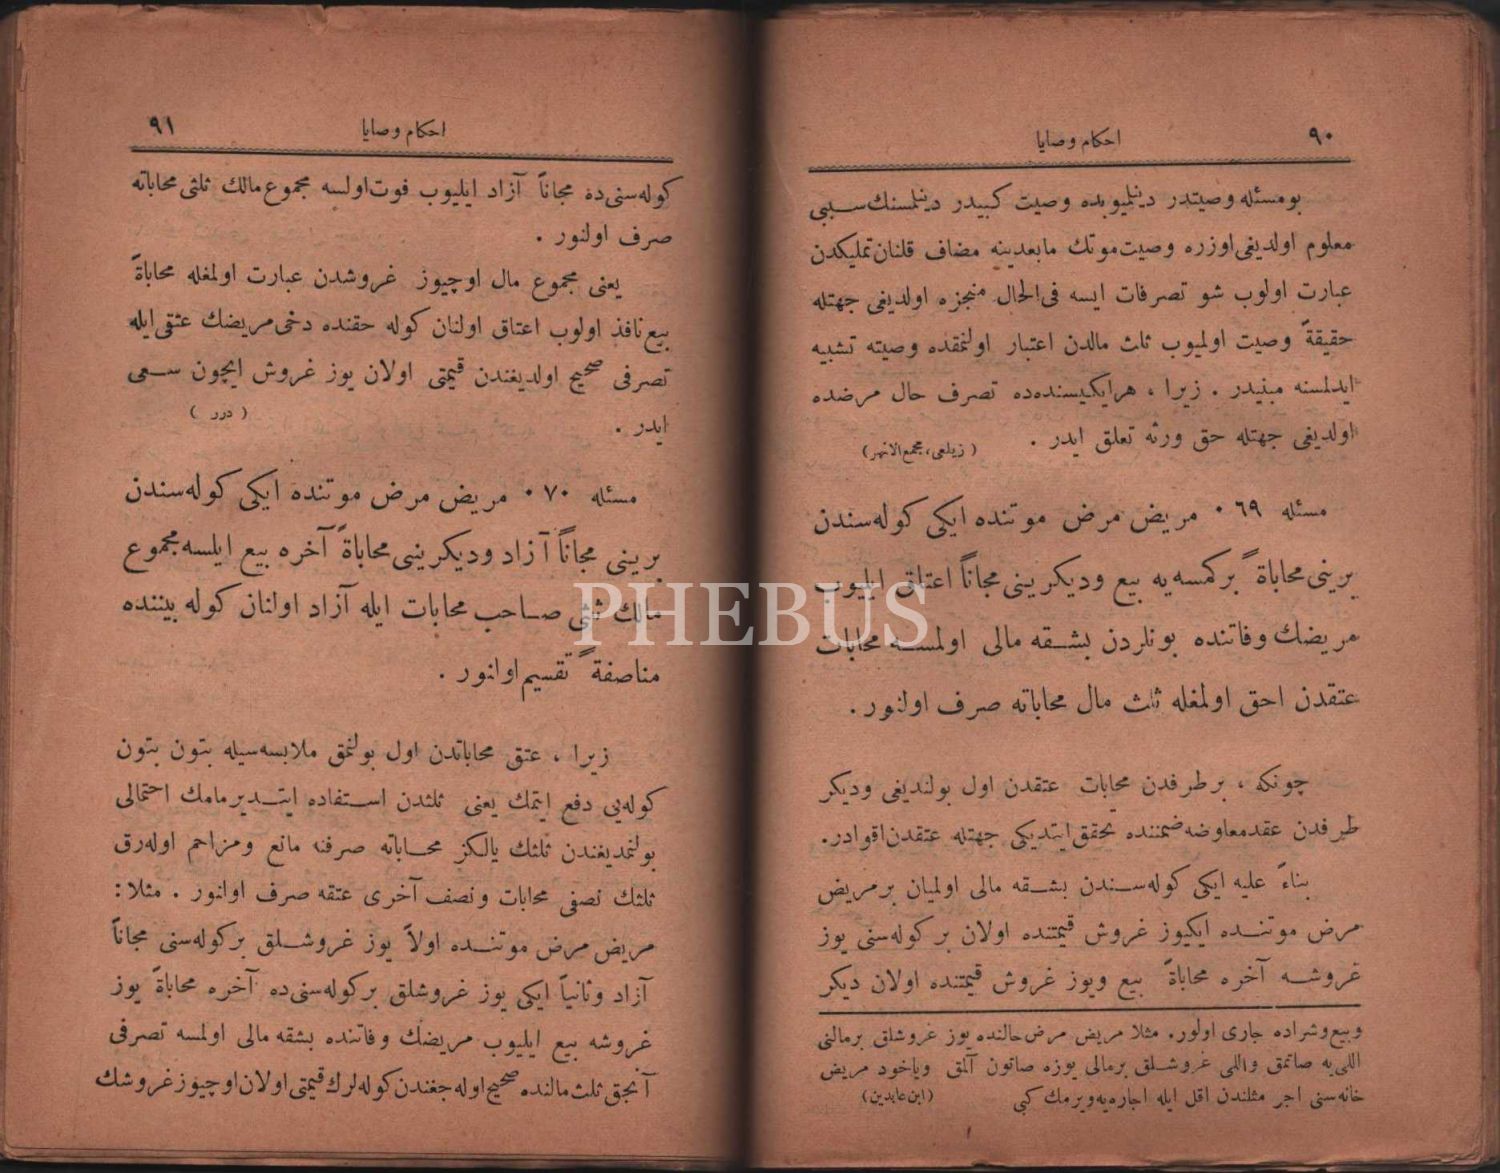 ٩٠
احكام وصايا
بومسئله وصيتدر دينلميوبده وصيت كبيدر دينلمسنك سببى
معلوم اولديغى اوزره وصيت موتك مابعدينه مضاف قلنان تمليكدن
عبارت اولوب شو تصرفات ايسه فى الحال منجزه اولديغى جهتله
حقيقةً وصيت اولميوب ثلث مالدن اعتبار اولنمقده وصيته تشبيه
ايدلمسنه مبنيدر . زيرا ، هرايكيسنده‌ده تصرف حال مرضده
اولديغى جهتله حق ورثه تعلق ايدر . ( زيلعى، مجمع الانهر)
مسئله ٦٩ ٠ مريض مرض موتنده ايكى كوله‌سندن
برينى محاباةً بركمسه‌يه بيع وديكرينى مجاناً اعتاق ايليوب
مريضك وفاتنده بونلردن بشقه مالى اولمسه محابات
عتقدن احق اولمغله ثلث مال محاباته صرف اولنور .
چونكه ، برطرفدن محابات عتقدن اول بولنديغى وديكر
طرفدن عقدمعاوضه ضمننده تحقق ايتديكى جهتله عتقدن اقوادر.
بناءً عليه ايكى كوله‌سندن بشقه مالى اولميان برمريض
مرض موتنده ايكيوز غروش قيمتنده اولان بر كوله‌سنى يوز
غروشه آخره محاباةً بيع ويوز غروش قيمتنده اولان ديكر
وبيع وشراده جارى اولور. مثلا مريض مرض حالنده يوز غروشلق برمالنى
اللى‌يه صاتمق واللى غروشلق برمالى يوزه صاتون آلمق وياخود مريض
خانه‌سنى اجر مثلندن اقل ايله اجاره‌يه ويرمك كبى (ابن عابدين)
٩١
احكام وصايا
كوله‌سنى‌ده مجاناً آزاد ايليوب فوت اولسه مجموع مالك ثلثى محاباته
صرف اولنور .
يعنى مجموع مال اوچيوز غروشدن عبارت اولمغله محاباةً
بيع نافذ اولوب اعتاق اولنان كوله حقنده دخى مريضك عتقى ايله
تصرفى صحيح اولديغندن قيمتى اولان يوز غروش ايچون سعى
ايدر . ( درر )
مسئله ٧٠ ٠ مريض مرض موتنده ايكى كوله‌سندن
برينى مجاناً آزاد وديكرينى محاباةً آخره بيع ايلسه مجموع
مالك ثلثى صاحب محابات ايله آزاد اولنان كوله بيننده
مناصفةً تقسيم اولنور .
زيرا ، عتق محاباتدن اول بولنمق ملابسه‌سيله بتون بتون
كوله‌يى دفع ايتمك يعنى ثلثدن استفاده ايتديرمامك احتمالى
بولنمديغندن ثلثك يالكز محاباته صرفنه مانع ومزاحم اوله‌رق
ثلثك نصفى محابات ونصف آخرى عتقه صرف اولنور . مثلا :
مريض مرض موتنده اولاً يوز غروشلق بركوله‌سنى مجاناً
آزاد وثانياً ايكى يوز غروشلق بركوله‌سنى‌ده آخره محاباةً يوز
غروشه بيع ايليوب مريضك وفاتنده بشقه مالى اولمسه تصرفى
آنجق ثلث مالنده صحيح اوله‌جغندن كوله‌لرك قيمتى اولان اوچيوز غروشك
PHEBUS